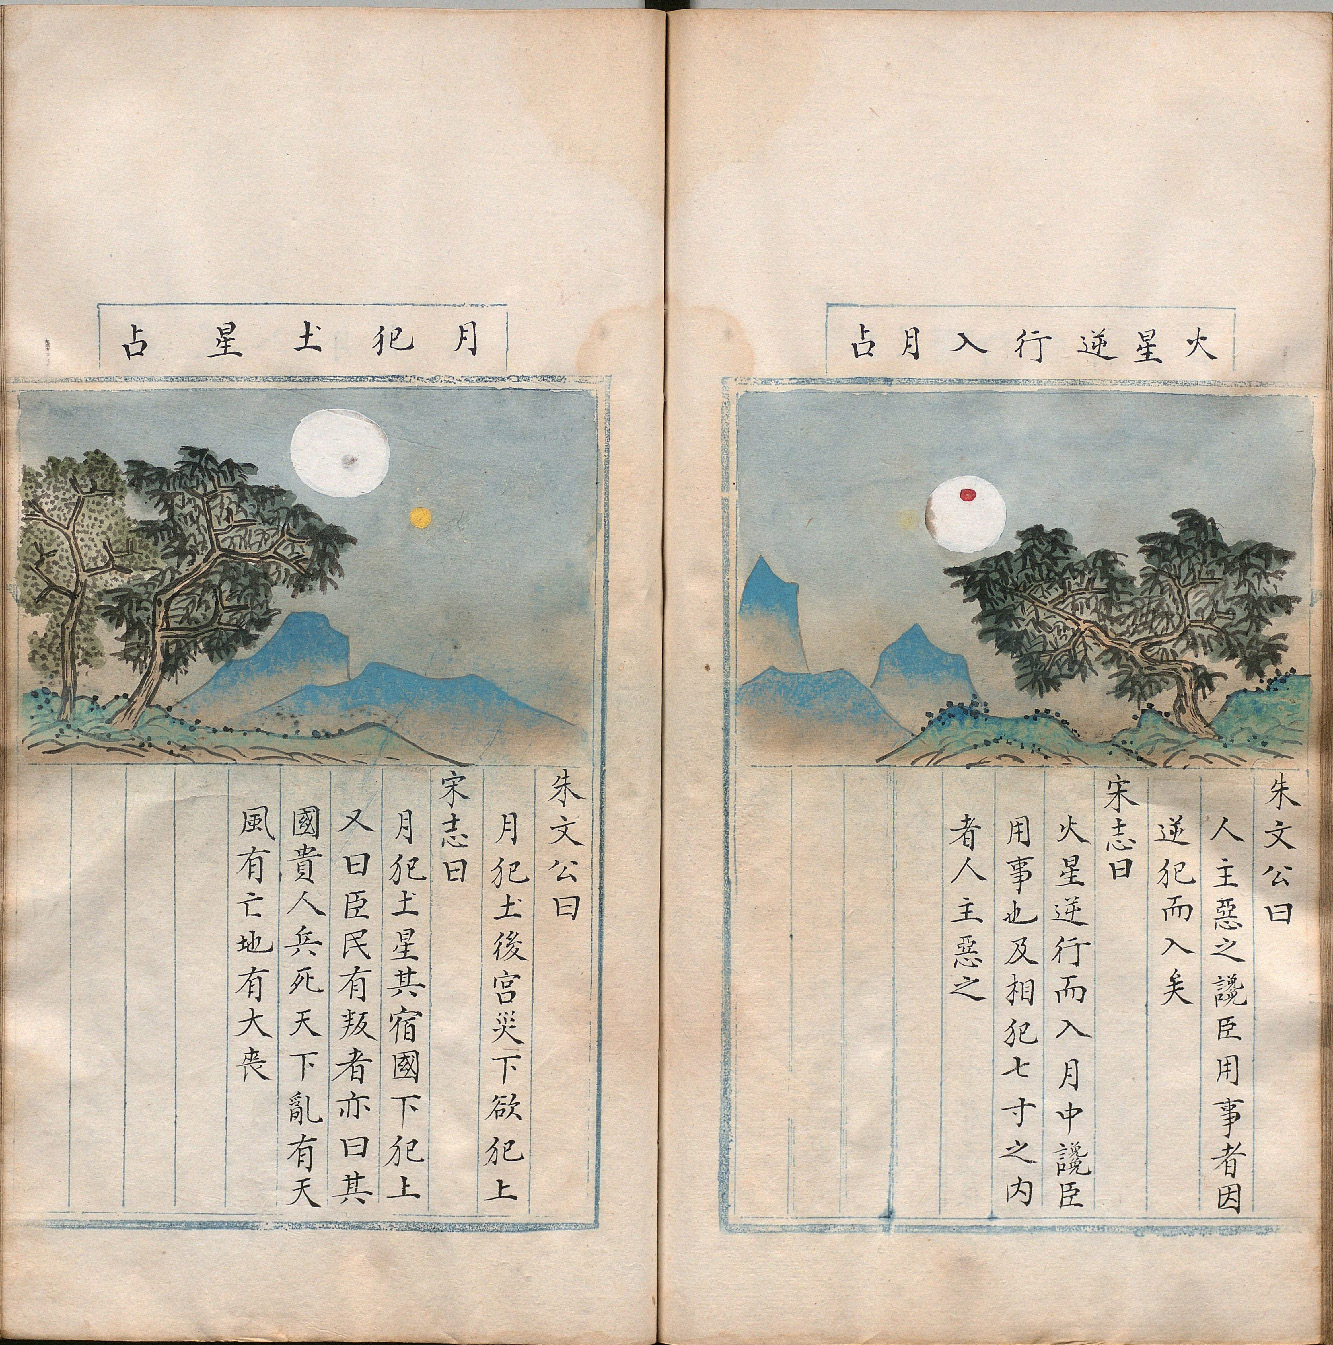 火星逆行入月占
朱文公曰
人主惡之讒臣用事者因
逆犯而入矣
宋志曰
火星逆行而入月中讒臣
用事也及相犯七寸之内
者人主惡之
月犯土星占
朱文公曰
月犯土後宮災下欲犯上
宋志曰
月犯土星其宿國下犯上
又曰臣民有叛者亦曰其
國貴人兵死天下亂有天
風有亡地有大喪